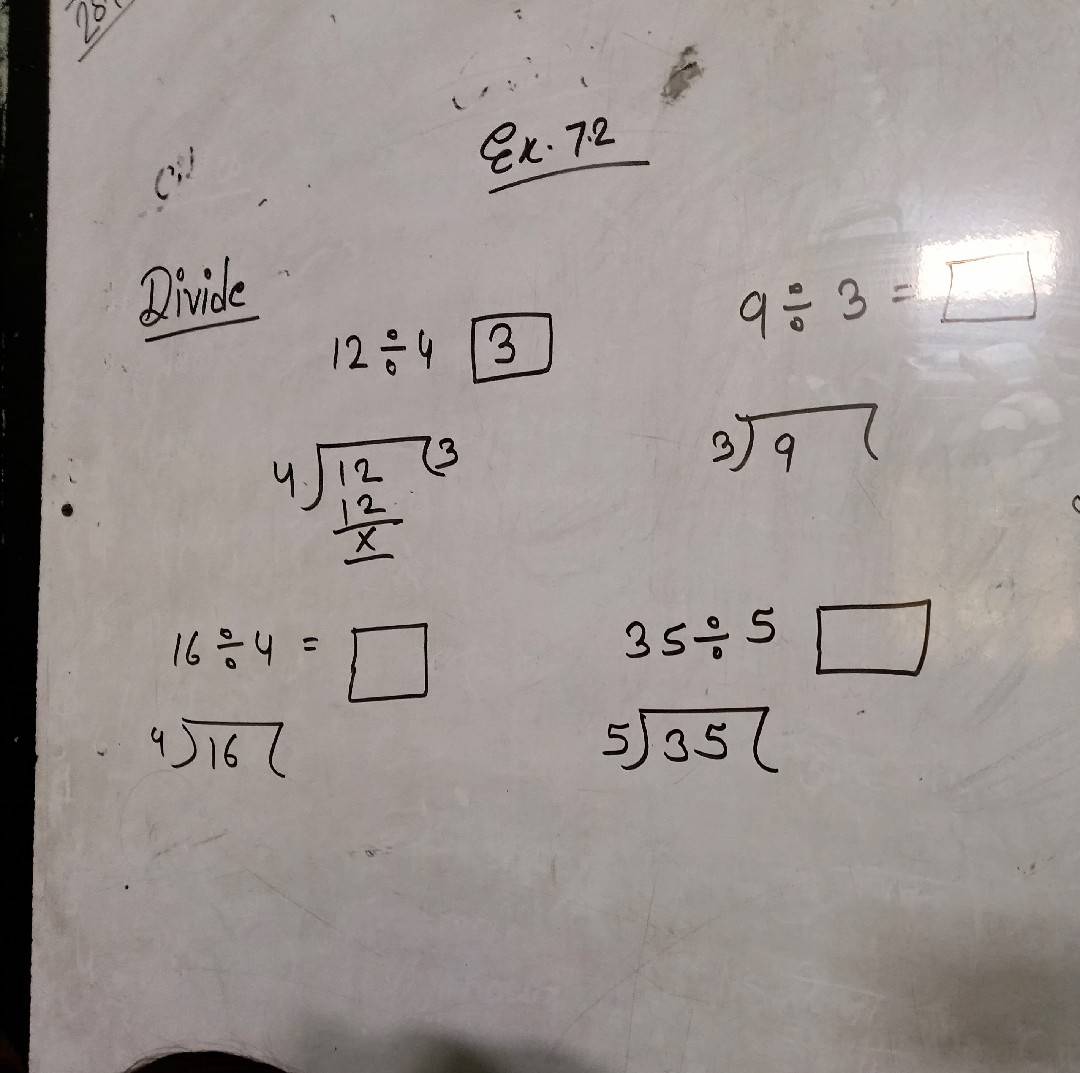 Ex. 7.2
Divide
12 ÷ 4 3
9 ÷ 3 =
4 12 3
12
x
3 9
16 ÷ 4 =
35 ÷ 5
4 16
5 35